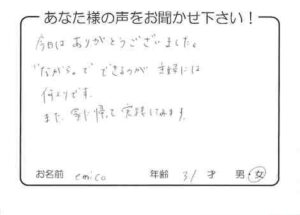 あなた様の声をお聞かせ下さい！
今日は ありがとうございました。
"ながら"で できるのが 主婦には
何よりです。
また 家に帰って 実践してみます。
お名前 emico 年齢 31 才 男・女